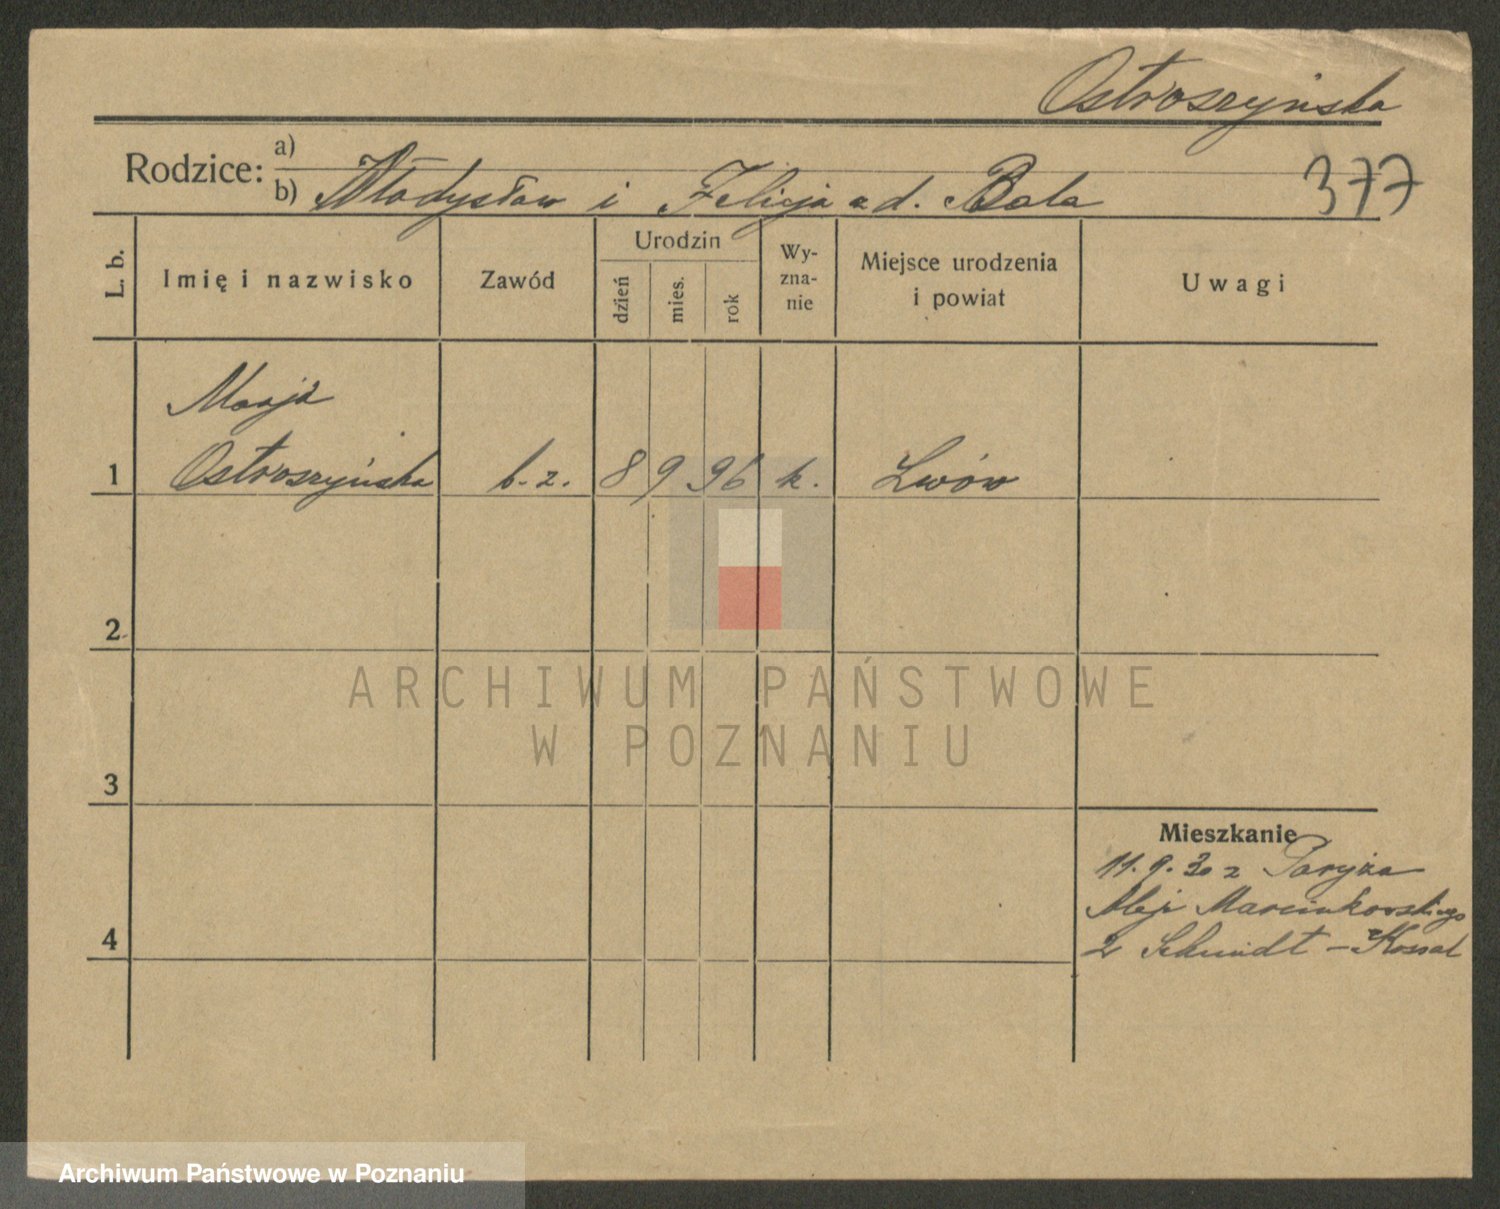 Ostroszyńska
Rodzice: a)
b) Władysław i Felicja a d. Bala
377
L. b.
Imię i nazwisko
Zawód
Urodzin
dzień
mies.
rok
Wy-
zna-
nie
Miejsce urodzenia
i powiat
Uwagi
Marja
1 Ostroszyńska b. z. 8 9 96 k. Lwów
2
3
4
Mieszkanie
11. 9. 30 z Paryża
Aleje Marcinkowskiego
2 Schmidt - Kossak
ARCHIWUM PAŃSTWOWE
W POZNANIU
Archiwum Państwowe w Poznaniu